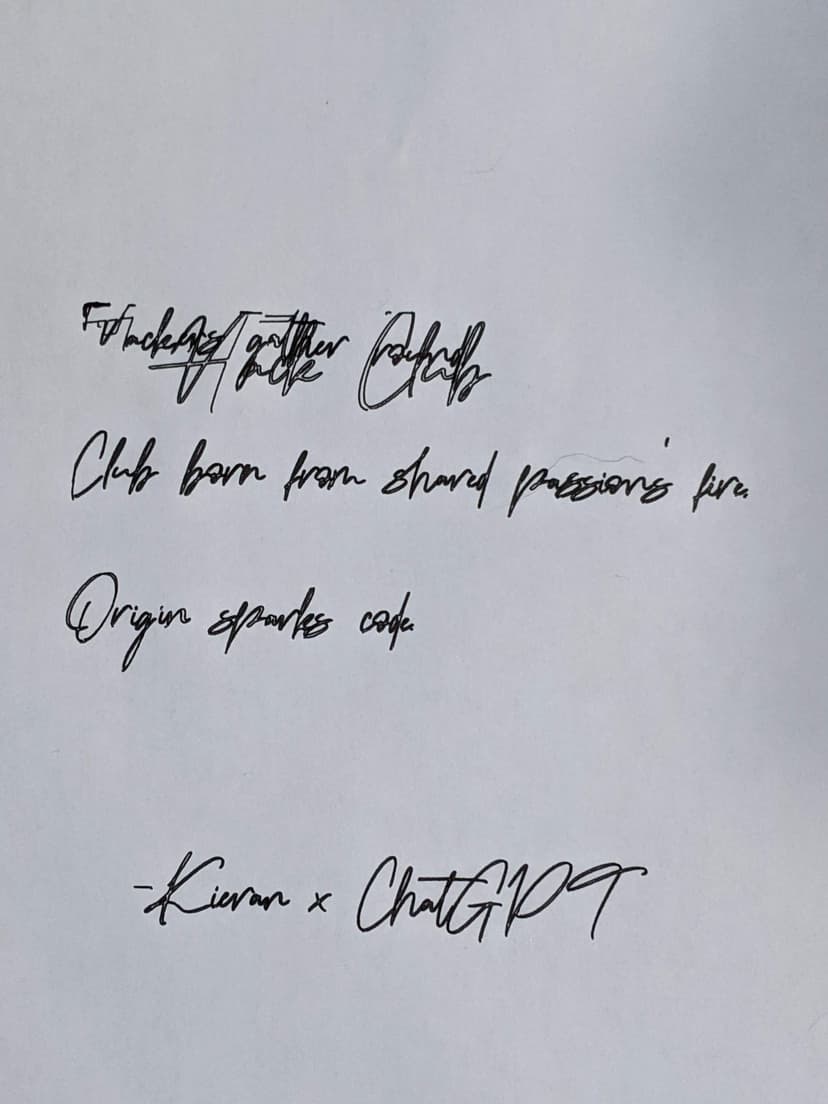 Hackers gather round
Hack Club
Club born from shared passion's fire.
Origin sparks code.
-Kieran x ChatGPT